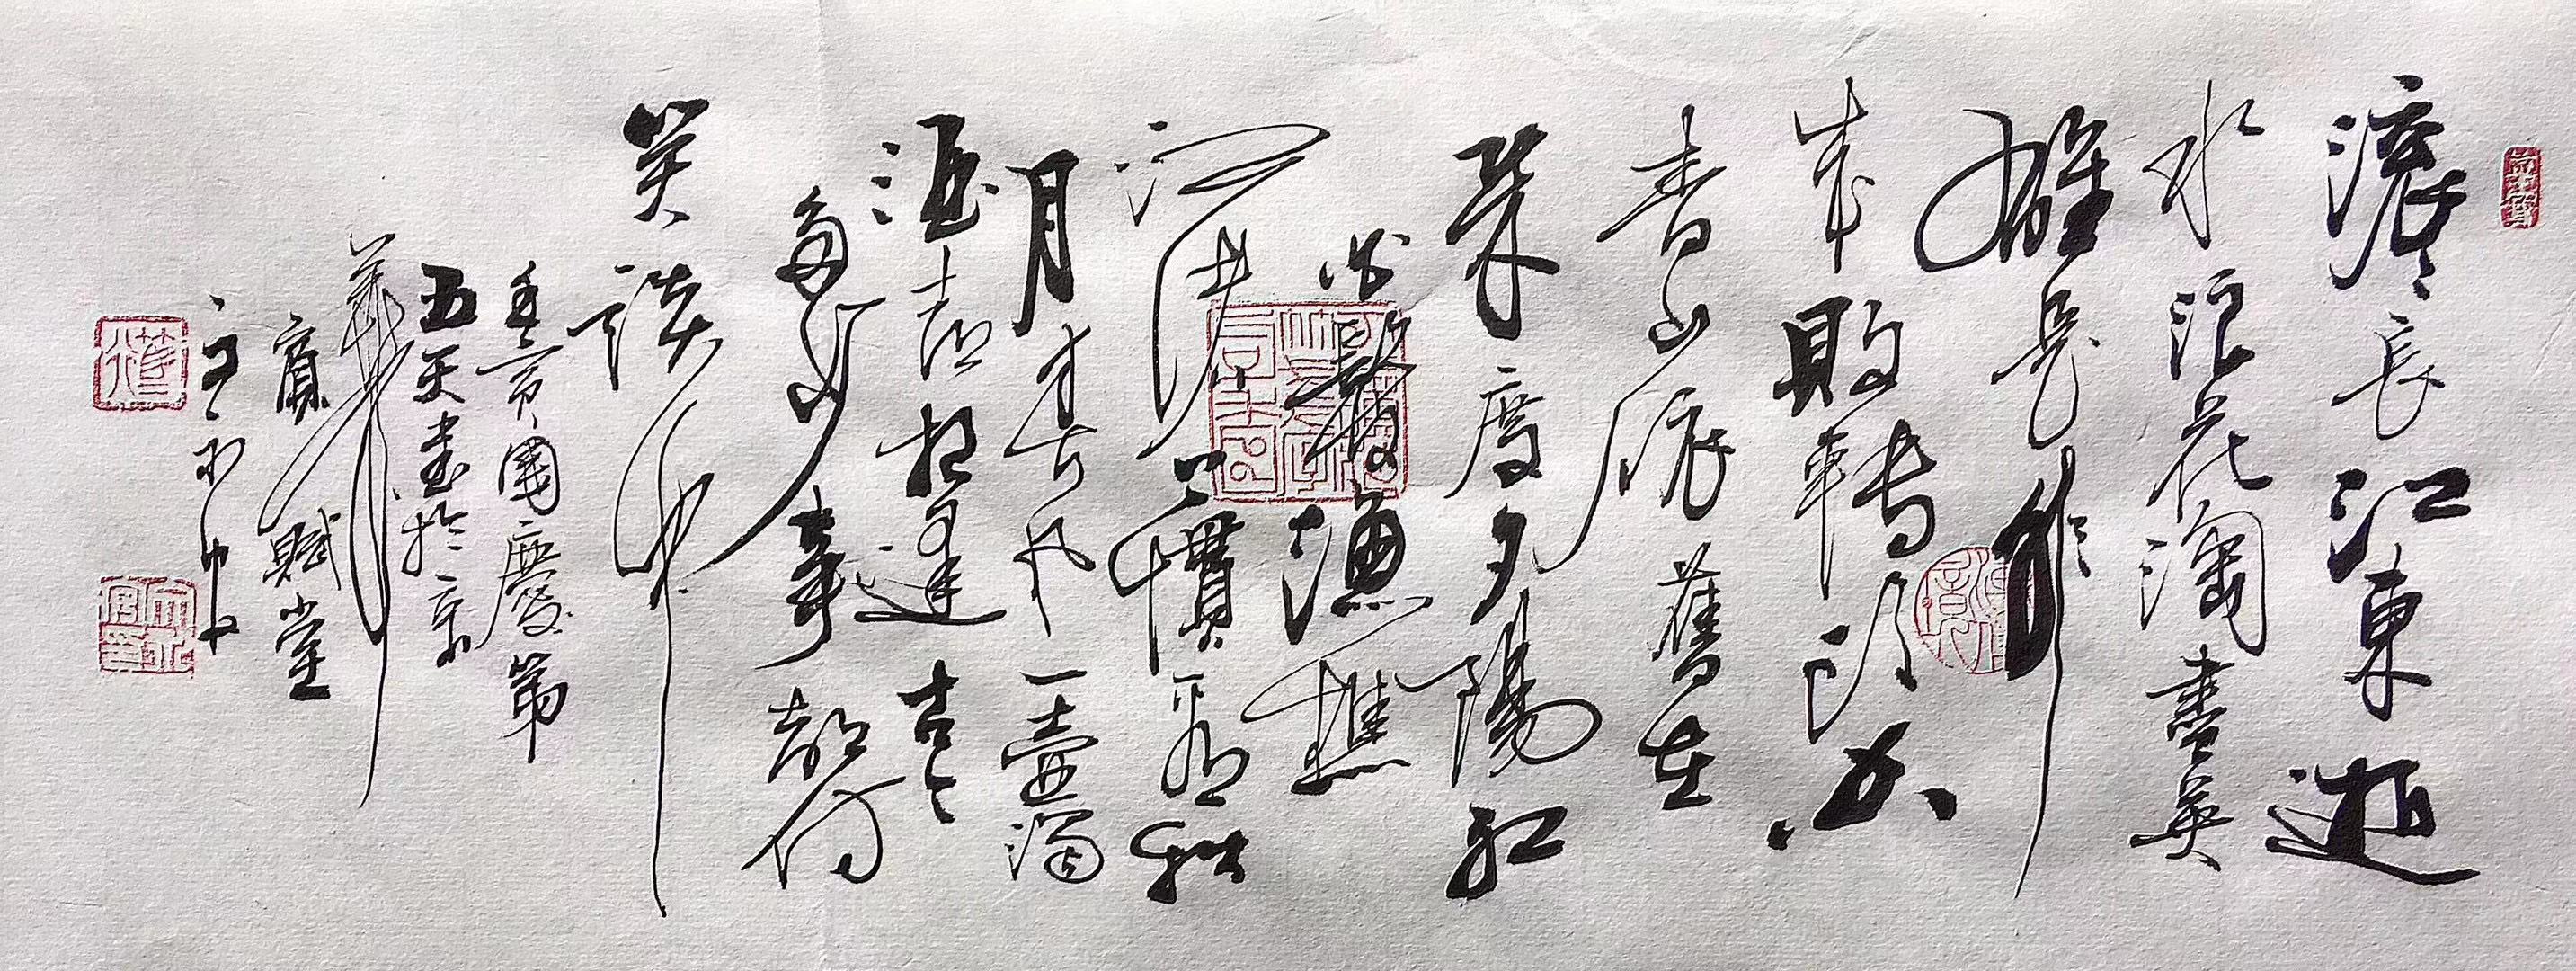 滾滾長江東逝
水浪花淘盡英
雄是非
成敗轉頭空
青山依舊在
幾度夕陽紅
白髮漁樵
江渚上慣看秋
月春風一壺濁
酒喜相逢古今
多少事都付
笑談中
壬寅國慶第
五天書於京
華
齋賦堂
主